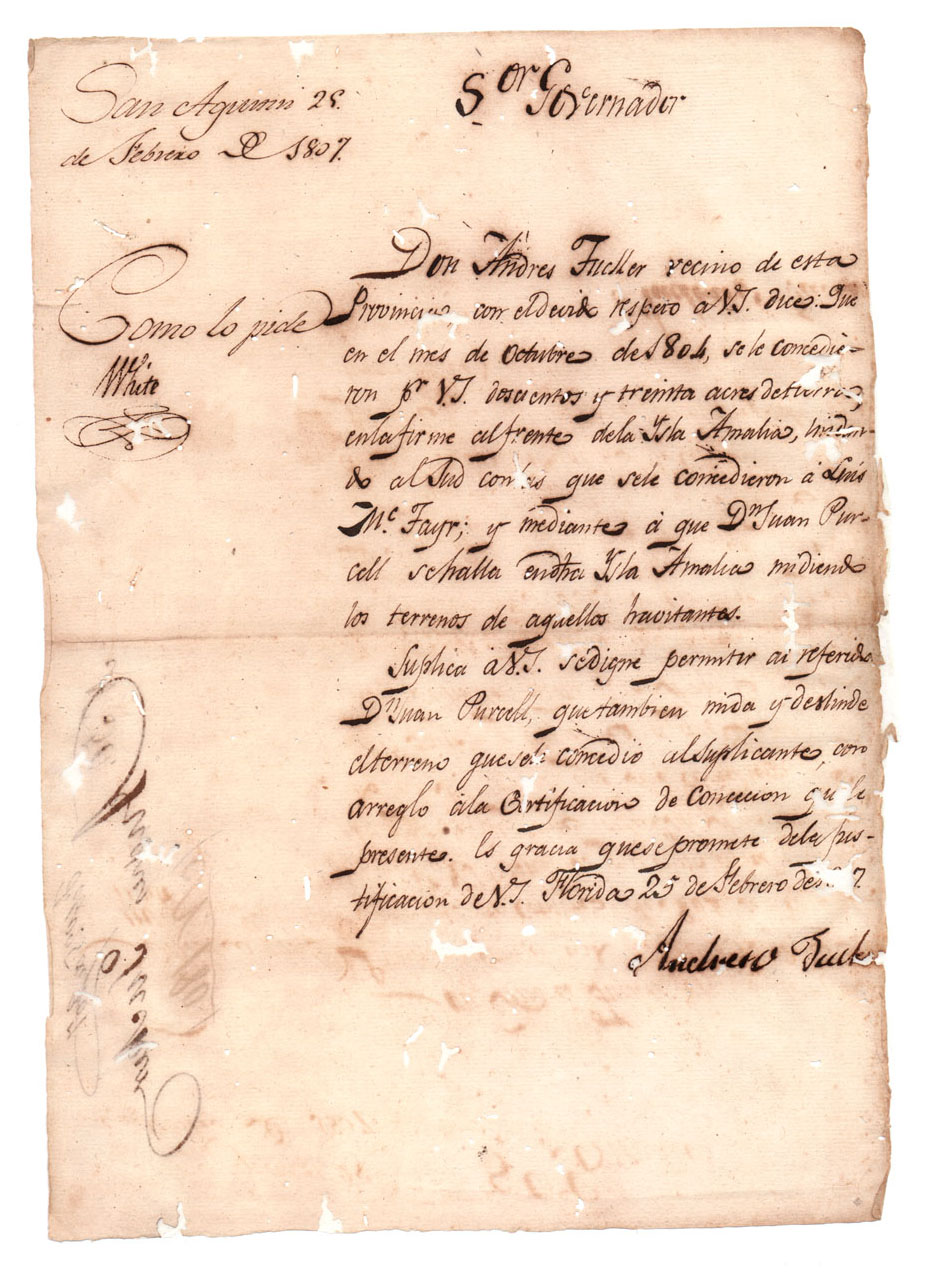 Sor Governador
San Agustin 25
de Febrero De 1807.
Como lo pide
White
Don Andres Fuller vecino de esta
Provincia con el devido respeto à V.S. dice: Que
en el mes de Octubre de 1804, sele concedie-
ron pr V.S. doscientos y treinta acres de tierra,
enla firme al frente dela Ysla Amalia, lindan-
do al Sud con las que sele concedieron à Luis
Mc Fayr; y mediante à que Dn Juan Pur-
cell sehalla endha Ysla Amalia midiendo
los terrenos de aquellos havitantes.
Suplica à V.S. sedigne permitir al referido
Dn Juan Purcell, que tambien mida y deslinde
el terreno quesele concedio al suplicante, con
arreglo àla Certificacion de Concecion que le
presente. Es gracia quese promete dela jus-
tificacion de V.S. Florida 25 de Febrero de 7.
Andrew